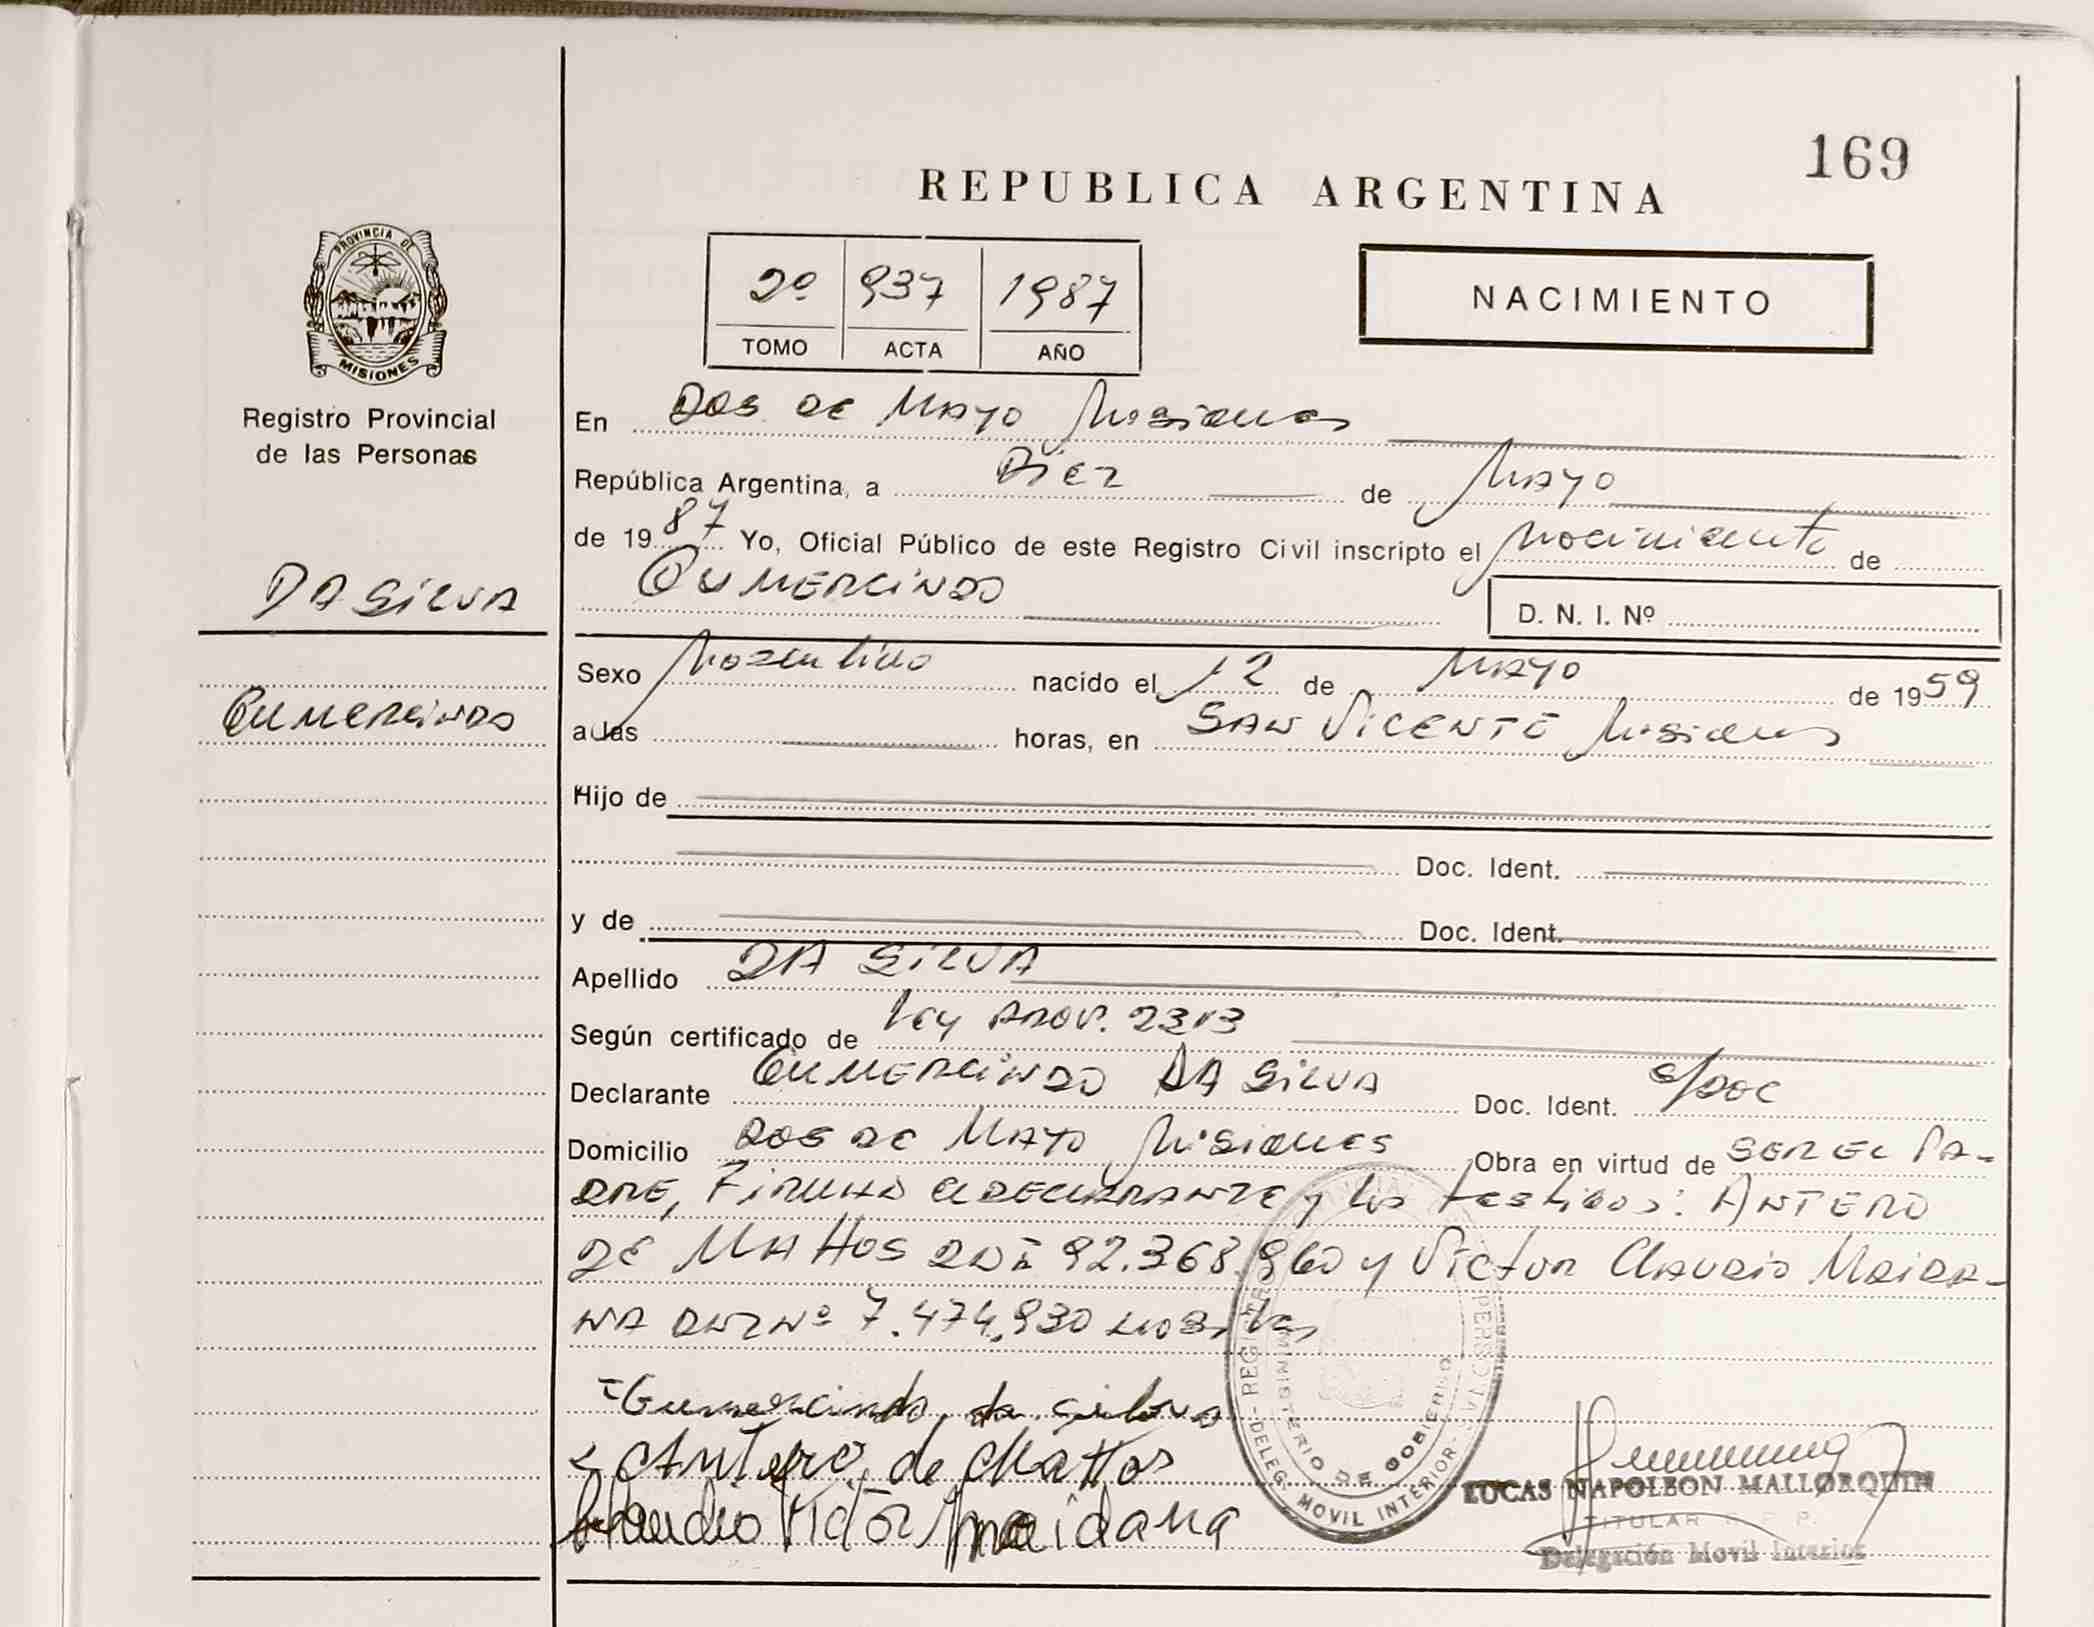 169
REPUBLICA ARGENTINA
PROVINCIA DE
MISIONES
Registro Provincial
de las Personas
2º 937 1987
TOMO ACTA AÑO
NACIMIENTO
En Dos de Mayo Misiones
República Argentina, a Diez de Mayo
de 1987 Yo, Oficial Público de este Registro Civil inscripto el Nacimiento de
GUMERCINDO
D. N. I. Nº
DA SILVA
GUMERCINDO
Sexo Masculino nacido el 12 de Mayo de 1959
a las horas, en SAN VICENTE Misiones
Hijo de
Doc. Ident.
y de Doc. Ident.
Apellido DA SILVA
Según certificado de Ley PROV. 2313
Declarante GUMERCINDO DA SILVA Doc. Ident. S/DOC
Domicilio DOS DE MAYO Misiones Obra en virtud de SER EL PA-
DRE, FIRMAN el DECLARANTE y los testigos: ANTERO
DE MATTOS DNI 92.368.960 y Victor CLAUDIO MAIDA-
NA DNI Nº 7.474.930
Gumercindo da silva
Antero de Mattos
Claudio Victor maidana
REGISTRO PERSONAS - DELEG. MOVIL INTERIOR -
MINISTERIO DE GOBIERNO
LUCAS NAPOLEON MALLORQUIN
TITULAR R. P. P.
Delegación Movil Interior